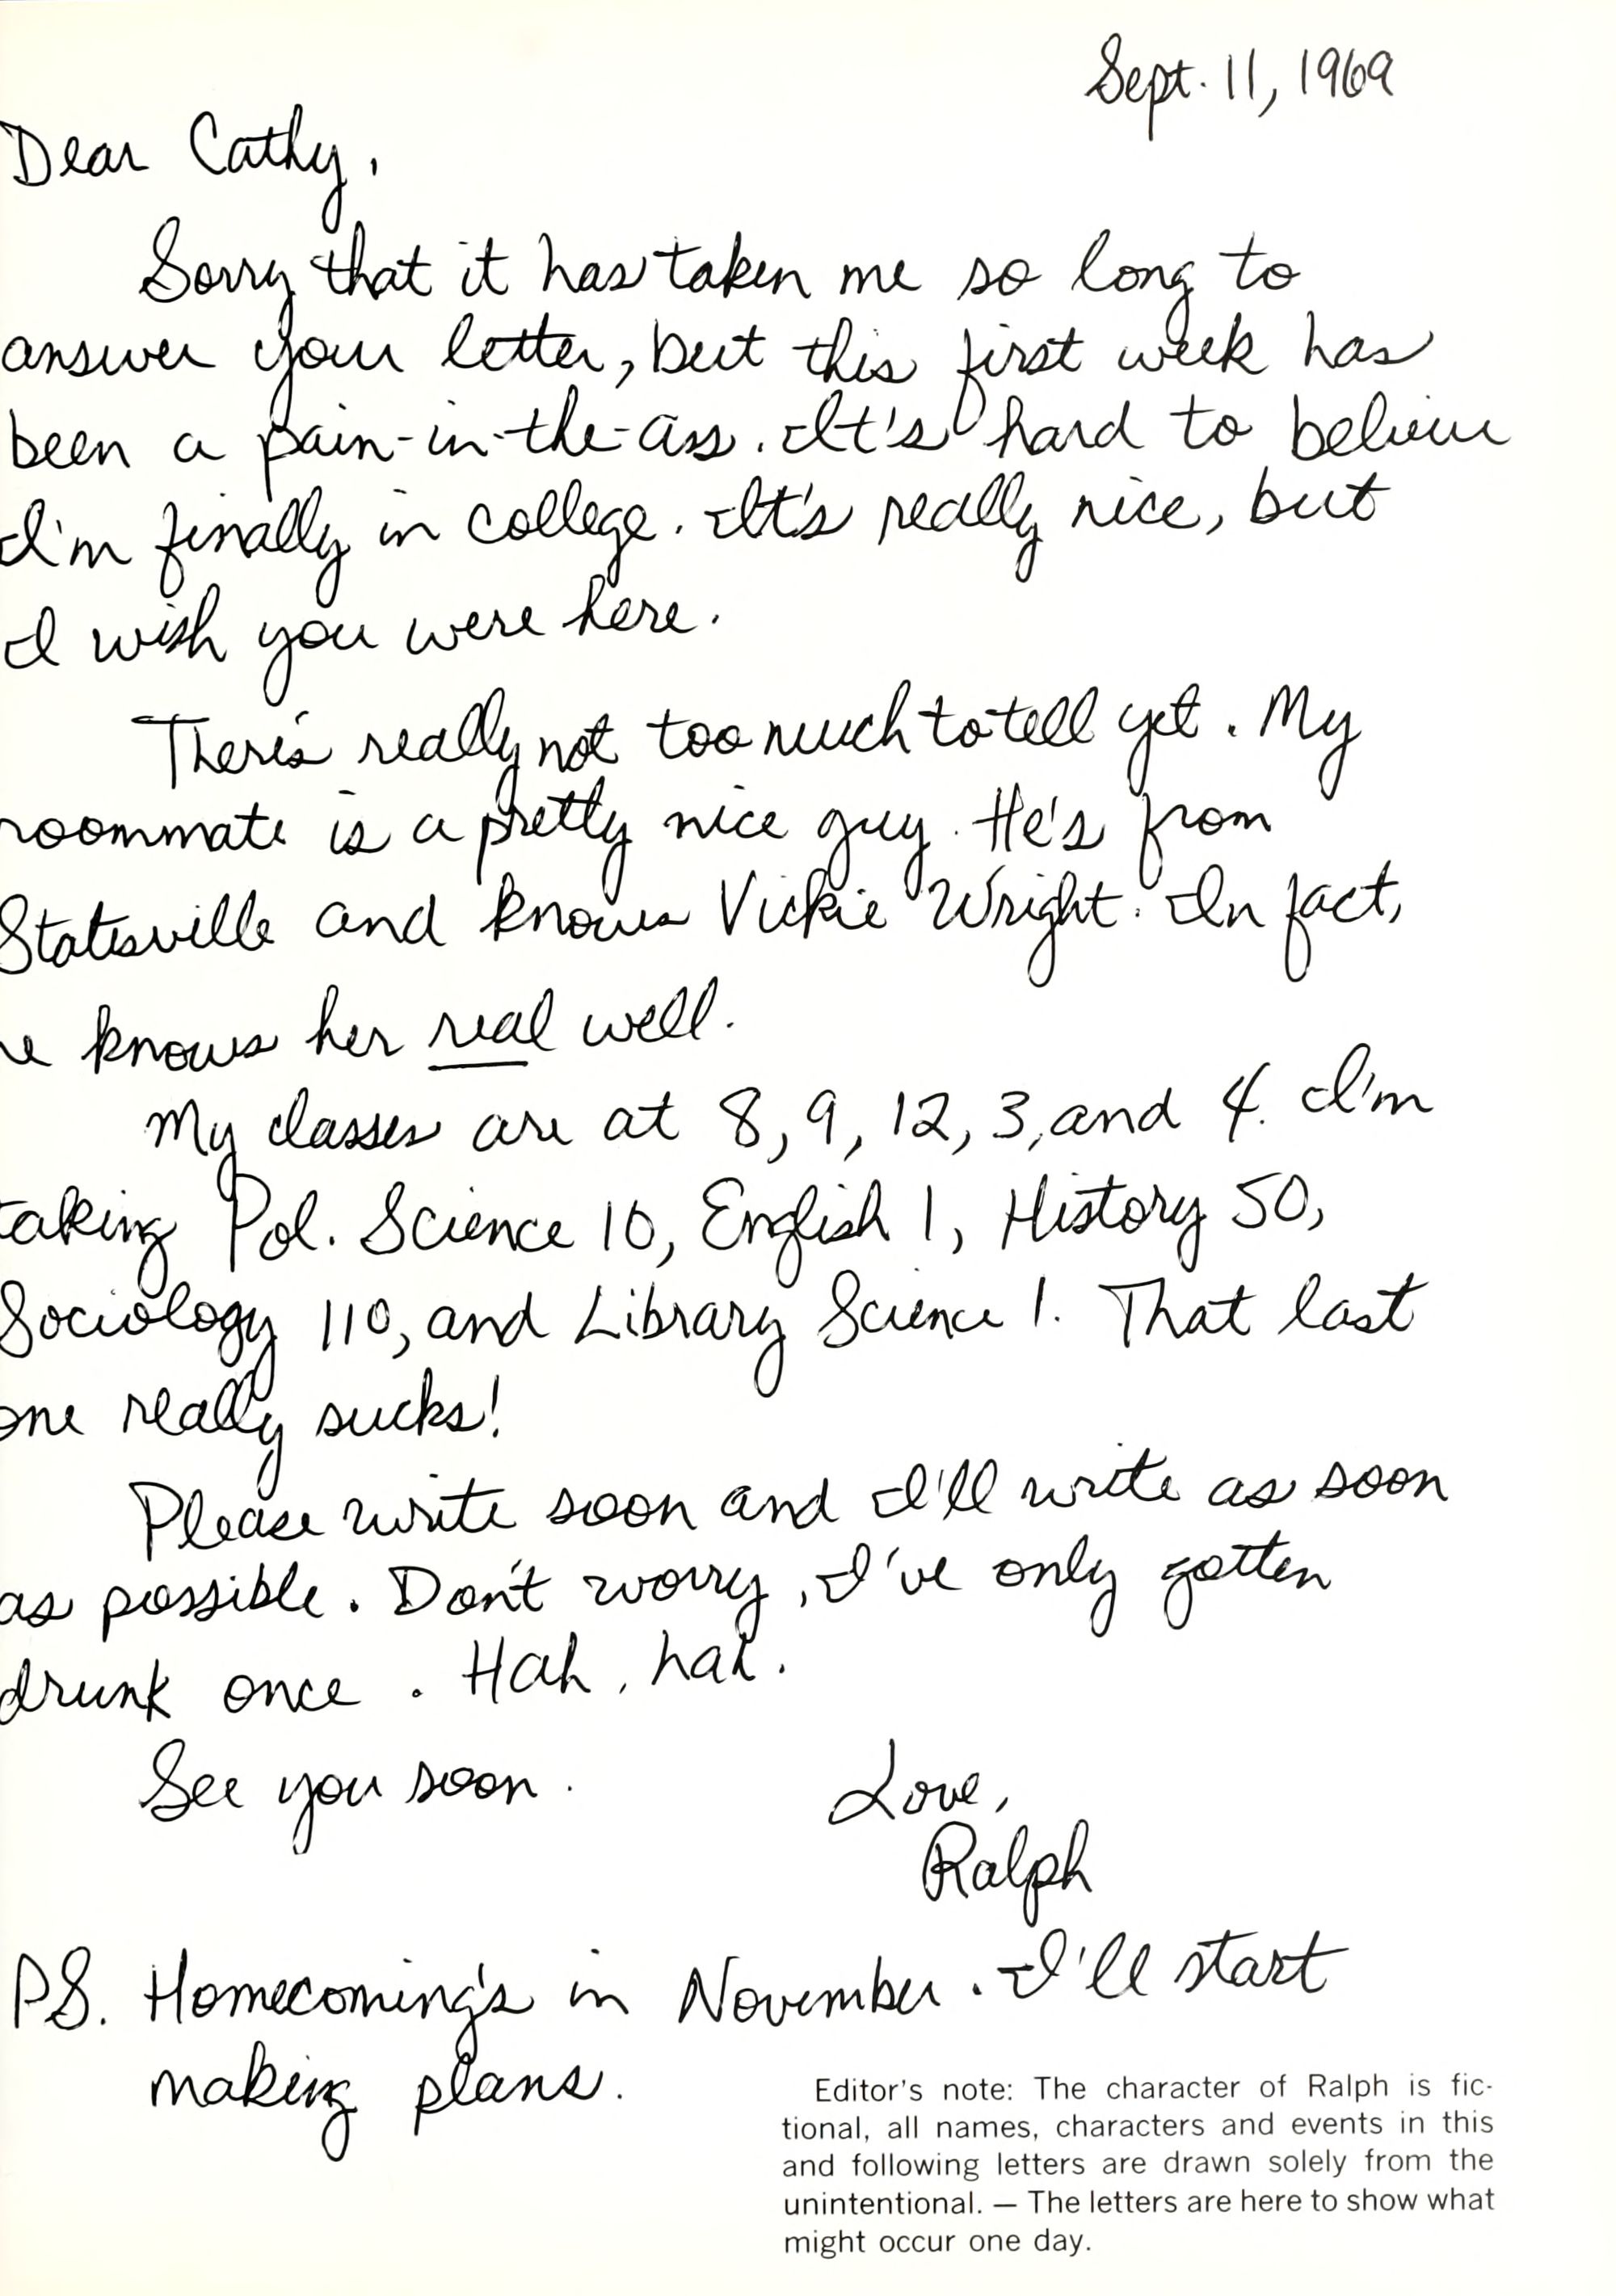 Sept. 11, 1969
Dear Cathy,
Sorry that it has taken me so long to
answer your letter, but this first week has
been a pain-in-the-ass. It's hard to believe
I'm finally in college. It's really nice, but
I wish you were here.
There's really not too much to tell yet. My
roommate is a pretty nice guy. He's from
Statesville and knows Vickie Wright. In fact,
he knows her real well.
My classes are at 8, 9, 12, 3, and 4. I'm
taking Pol. Science 10, English 1, History 50,
Sociology 110, and Library Science 1. That last
one really sucks!
Please write soon and I'll write as soon
as possible. Don't worry, I've only gotten
drunk once. Hah, hah.
See you soon.
Love,
Ralph
PS. Homecoming's in November. I'll start
making plans.
Editor's note: The character of Ralph is fic-
tional, all names, characters and events in this
and following letters are drawn solely from the
unintentional. — The letters are here to show what
might occur one day.